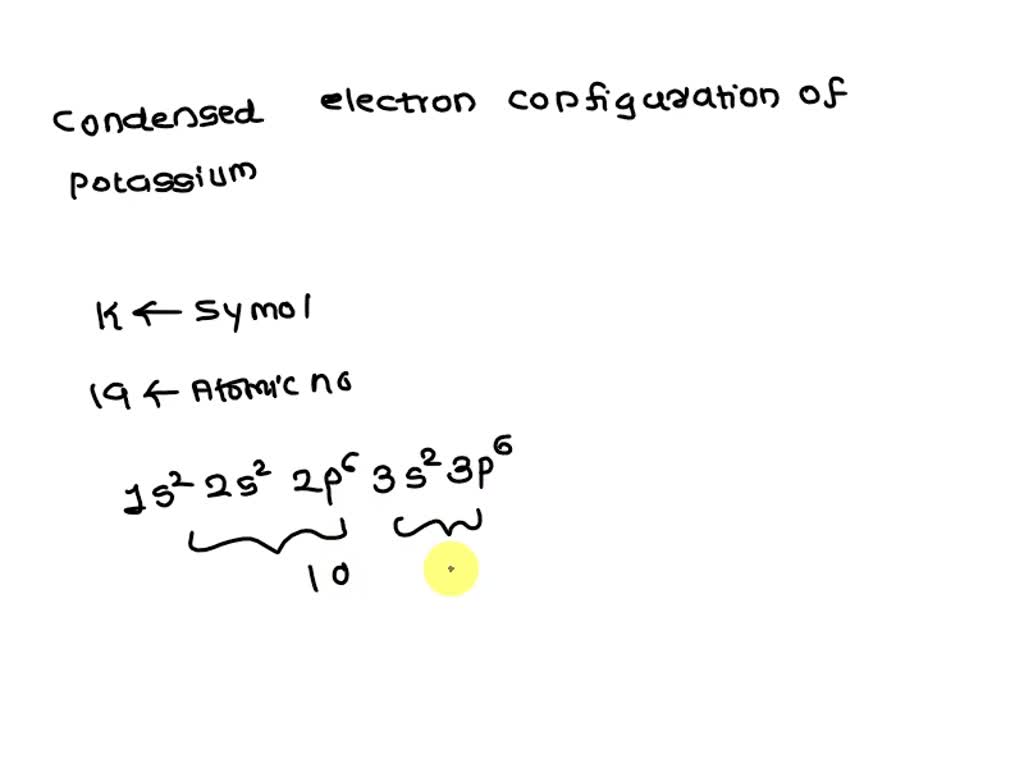 condensed electron configuration of
potassium
K ← Symol
19 ← Atomic no
1s² 2s² 2p⁶ 3s² 3p⁶
10